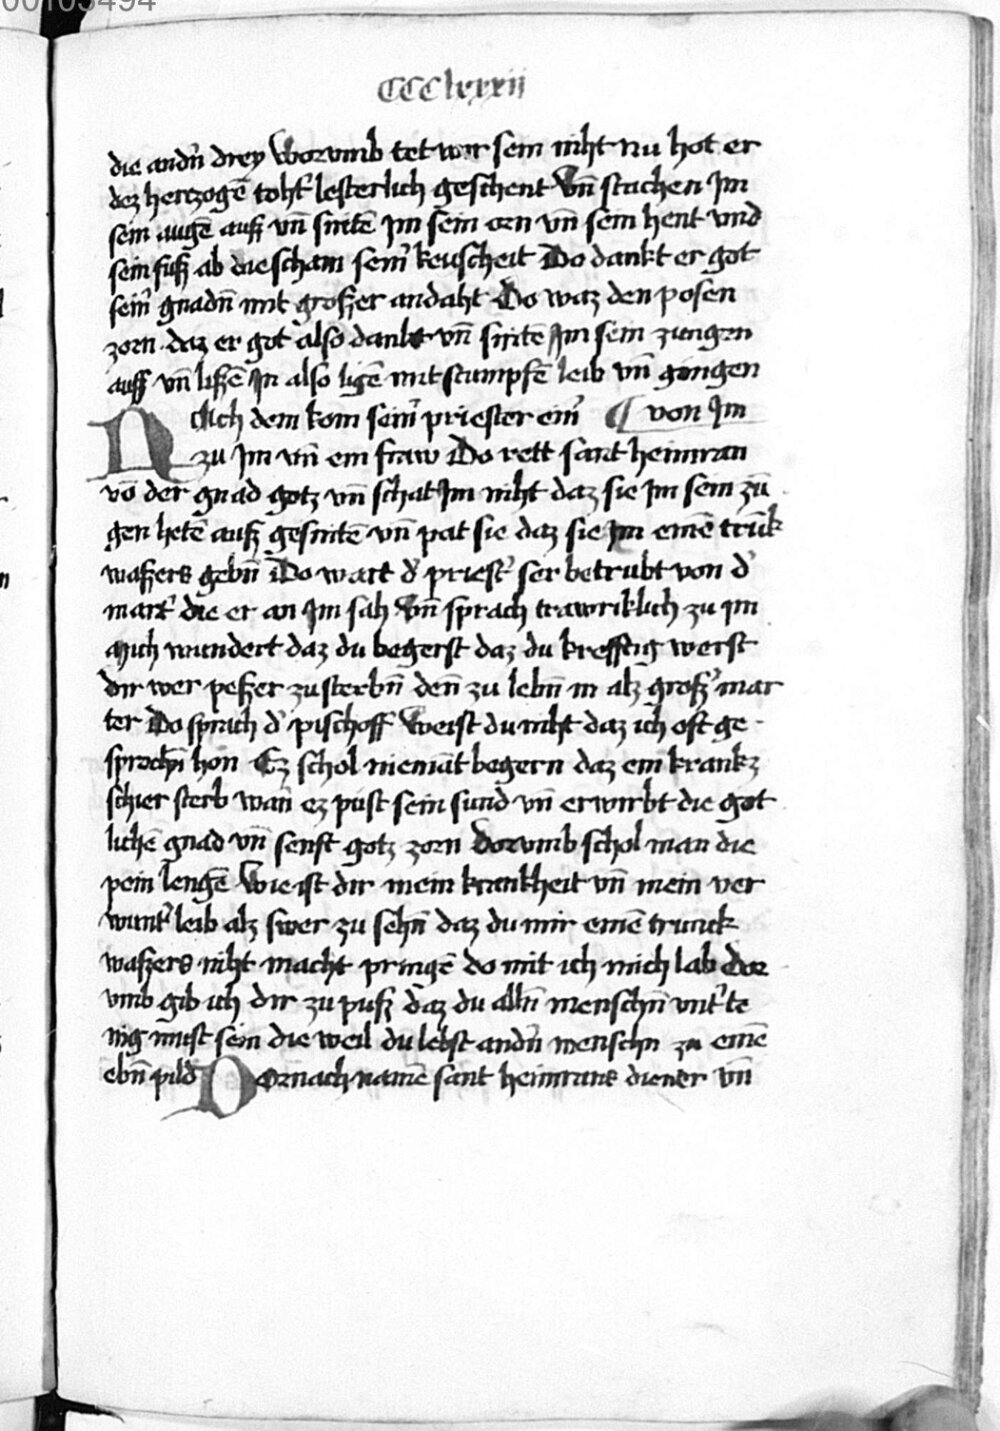 00103494
CCClxxxii
die andn̄ drey worumb tet wir sein niht nu hot er
dez hertzogē toht' lesterlich geschent Vn̄ stachen Jm
sein augē auß vn̄ snitē Jm sein orn vn̄ sein hent vnd
sein fuß ab die scham sein' keuscheit Do dankt er got
sein' gnadn̄ mit grosser andaht Do waz den posen
zorn daz er got also dankt vn̄ snitē Jm sein zungen
auß vn̄ lissē Jn also ligē mit stumpfē leib vn̄ gingen
Nach dem kom sein' priester ein' ¶ von Jm
zu Jm vn̄ ein fraw Do rett sant heimran
vō der gnad gotz vn̄ schat Jm niht daz sie Jm sein zū
gen hetē auß gesnitē vn̄ pat sie daz sie Jm einē trūk
wassers gebn̄ Do wart d' priest' ser betrubt von d'
mart' die er an Jm sah Vn̄ sprach trawriklich zu Jm
Mich wundert daz du begerst daz du krefftig werst
dir wer pesser zu sterbn̄ denn̄ zu lebn̄ in alz groß' mar
ter Do sprach d' pischoff Weist du niht daz ich oft ge
sprochn̄ hon Ez schol niemāt begern daz ein krankz
schier sterb wan̄ ez püst sein sund vn̄ erwirbt die got
lichē gnad vn̄ senft gotz zorn dorumb schol man die
pein lengē Wie ist dir mein krankheit vn̄ mein ver
wunt' leib alz swer zu sehn̄ daz du mir einē trunck
wassers niht macht pringē do mit ich mich lab dor
vmb gib ich dir zu puß daz du alln̄ menschn̄ vnt'te
nig must sein die weil du lebst andn̄ menschn zu einē
ebn̄ pild Dornach namē sant heimrans diener vn̄